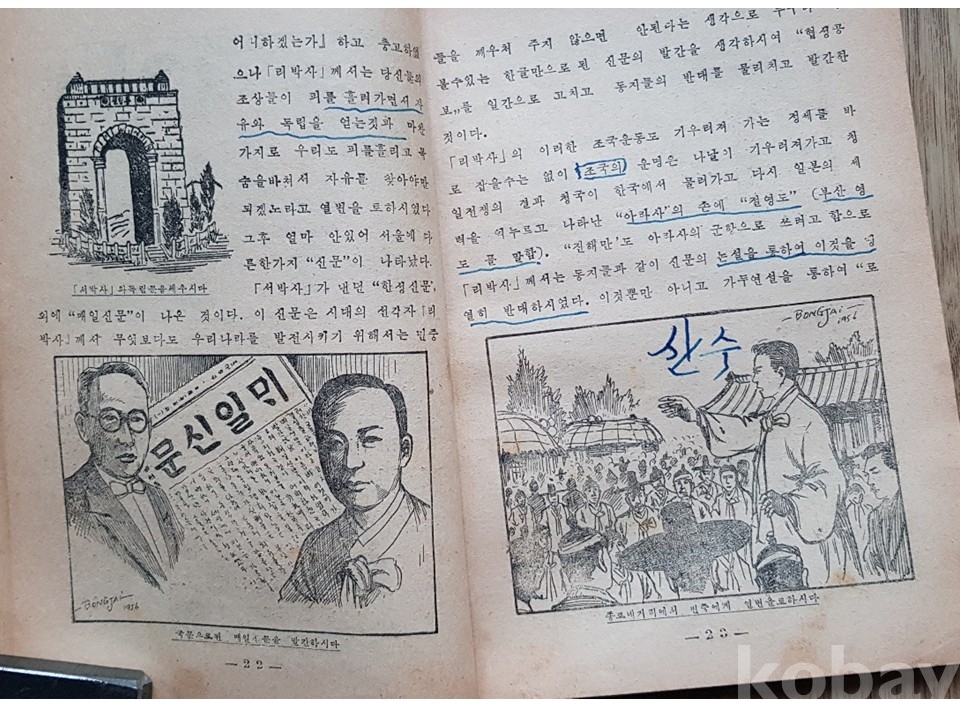 어니하겠는가』 하고 충고하였
으나 「리박사」께서는 당신들의
조상들이 피를 흘려가면서 자
유와 독립을 얻는것과 마찬
가지로 우리도 피를흘리고 목
숨을바쳐서 자유를 찾아야만
되겠노라고 열변을 토하시였다
그후 얼마 안있어 서울에 다
른한가지 "신문"이 나타났다.
「서박사」가 낸던 "한성신문",
외에 "매일신문"이 나온 것이다. 이 신문은 시대의 선각자 「리
박사」께서 무엇보다도 우리나라를 발전시키기 위해서는 민중
「서박사」와독립문을세우시다
문신일믜
BONGJAI
1956
국문으로된 매일신문을 발간하시다
—22—
들을 깨우쳐 주지 않으면 안된다는 생각으로
볼수있는 한글만으로 된 신문의 발간을 생각하시여 "협성공
보"를 일간으로 고치고 동지들의 반대를 물리치고 발간한
것이다.
「리박사」의 이러한 조국운동도 기우러져 가는 정세를 바
로 잡을수는 없이 조국의 운명은 나날이 기우러져가고 청
일전쟁의 결과 청국이 한국에서 물러가고 다시 일본의 세
력을 억누르고 나타난 "아라사"의 손에 "절영도" (부산 영
도를 말함). "진해만"도 아라사의 군항으로 쓰려고 함으로
「리박사」께서는 동지들과 같이 신문의 논설을 통하여 이것을 맹
열히 반대하시였다. 이것뿐만 아니고 가두연설을 통하여 "로
BONGJAI
1956
산수
종로네거리에서 민중에게 열변을토하시다
—23—
kobay